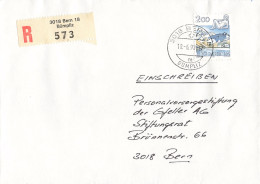 3018 Bern 18
Bümpliz
R
573
200
3018 BERN
BÜMPLIZ
EINSCHREIBEN
Personalversorgestiftung
der Gfeller AG
Stiftungsrat
Brünnenstr. 66
3018 Bern